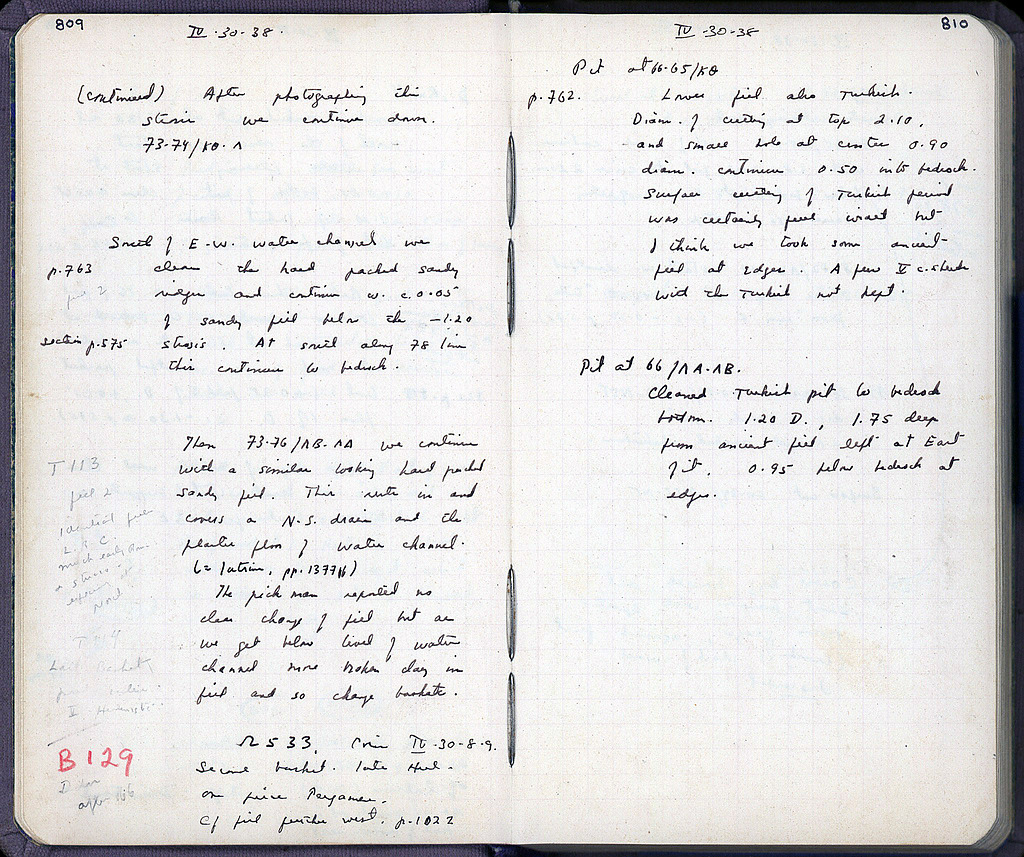 809
IV-30-38.
(continued) After photographing the
strosis we continue down.
73-74/ΚΘ-Λ
South of E-W. water channel we
p.763 clean the hard packed sandy
fill 2 ridges and continue w. c. 0.05
of sandy fill below the -1.20
section p.575 strosis. At south along 78 line
this continues to bedrock.
Then 73-76/ΛΒ-ΛΔ we continue
T 113 with a similar looking hard packed
fill 2 sandy fill. This runs in and
identical
covers a N-S. drain and the
L.R.C.
plaster floor of water channel.
much early Rom.
(= latrine, pp. 1377ff)
a strosis
North
The pick man reported no
clear change of fill but as
T 114 we get below level of water
Last baskets channel more broken clay in
fill and so change baskets.
II Hellenistic.
B 129
Ω 533, Coin IV-30-8-9.
Second basket. late Hell.
after 166
one piece Pergamene.
Cf fill further west. p.1022
810
IV-30-38
Pit at 66-65/ΚΘ
p.762. Lower fill also Turkish.
Diam. of cutting at top 2.10,
and small hole at center 0.90
diam. continues 0.50 into bedrock.
Surface cutting of Turkish period
was certainly but
I think we took some ancient
fill at edges. A few V c. sherds
with the Turkish not kept.
Pit at 66/ΛΑ-ΛΒ.
Cleaned Turkish pit to bedrock
bottom. 1.20 D., 1.75 deep
from ancient fill left at East
of it. 0.95 below bedrock at
edges.